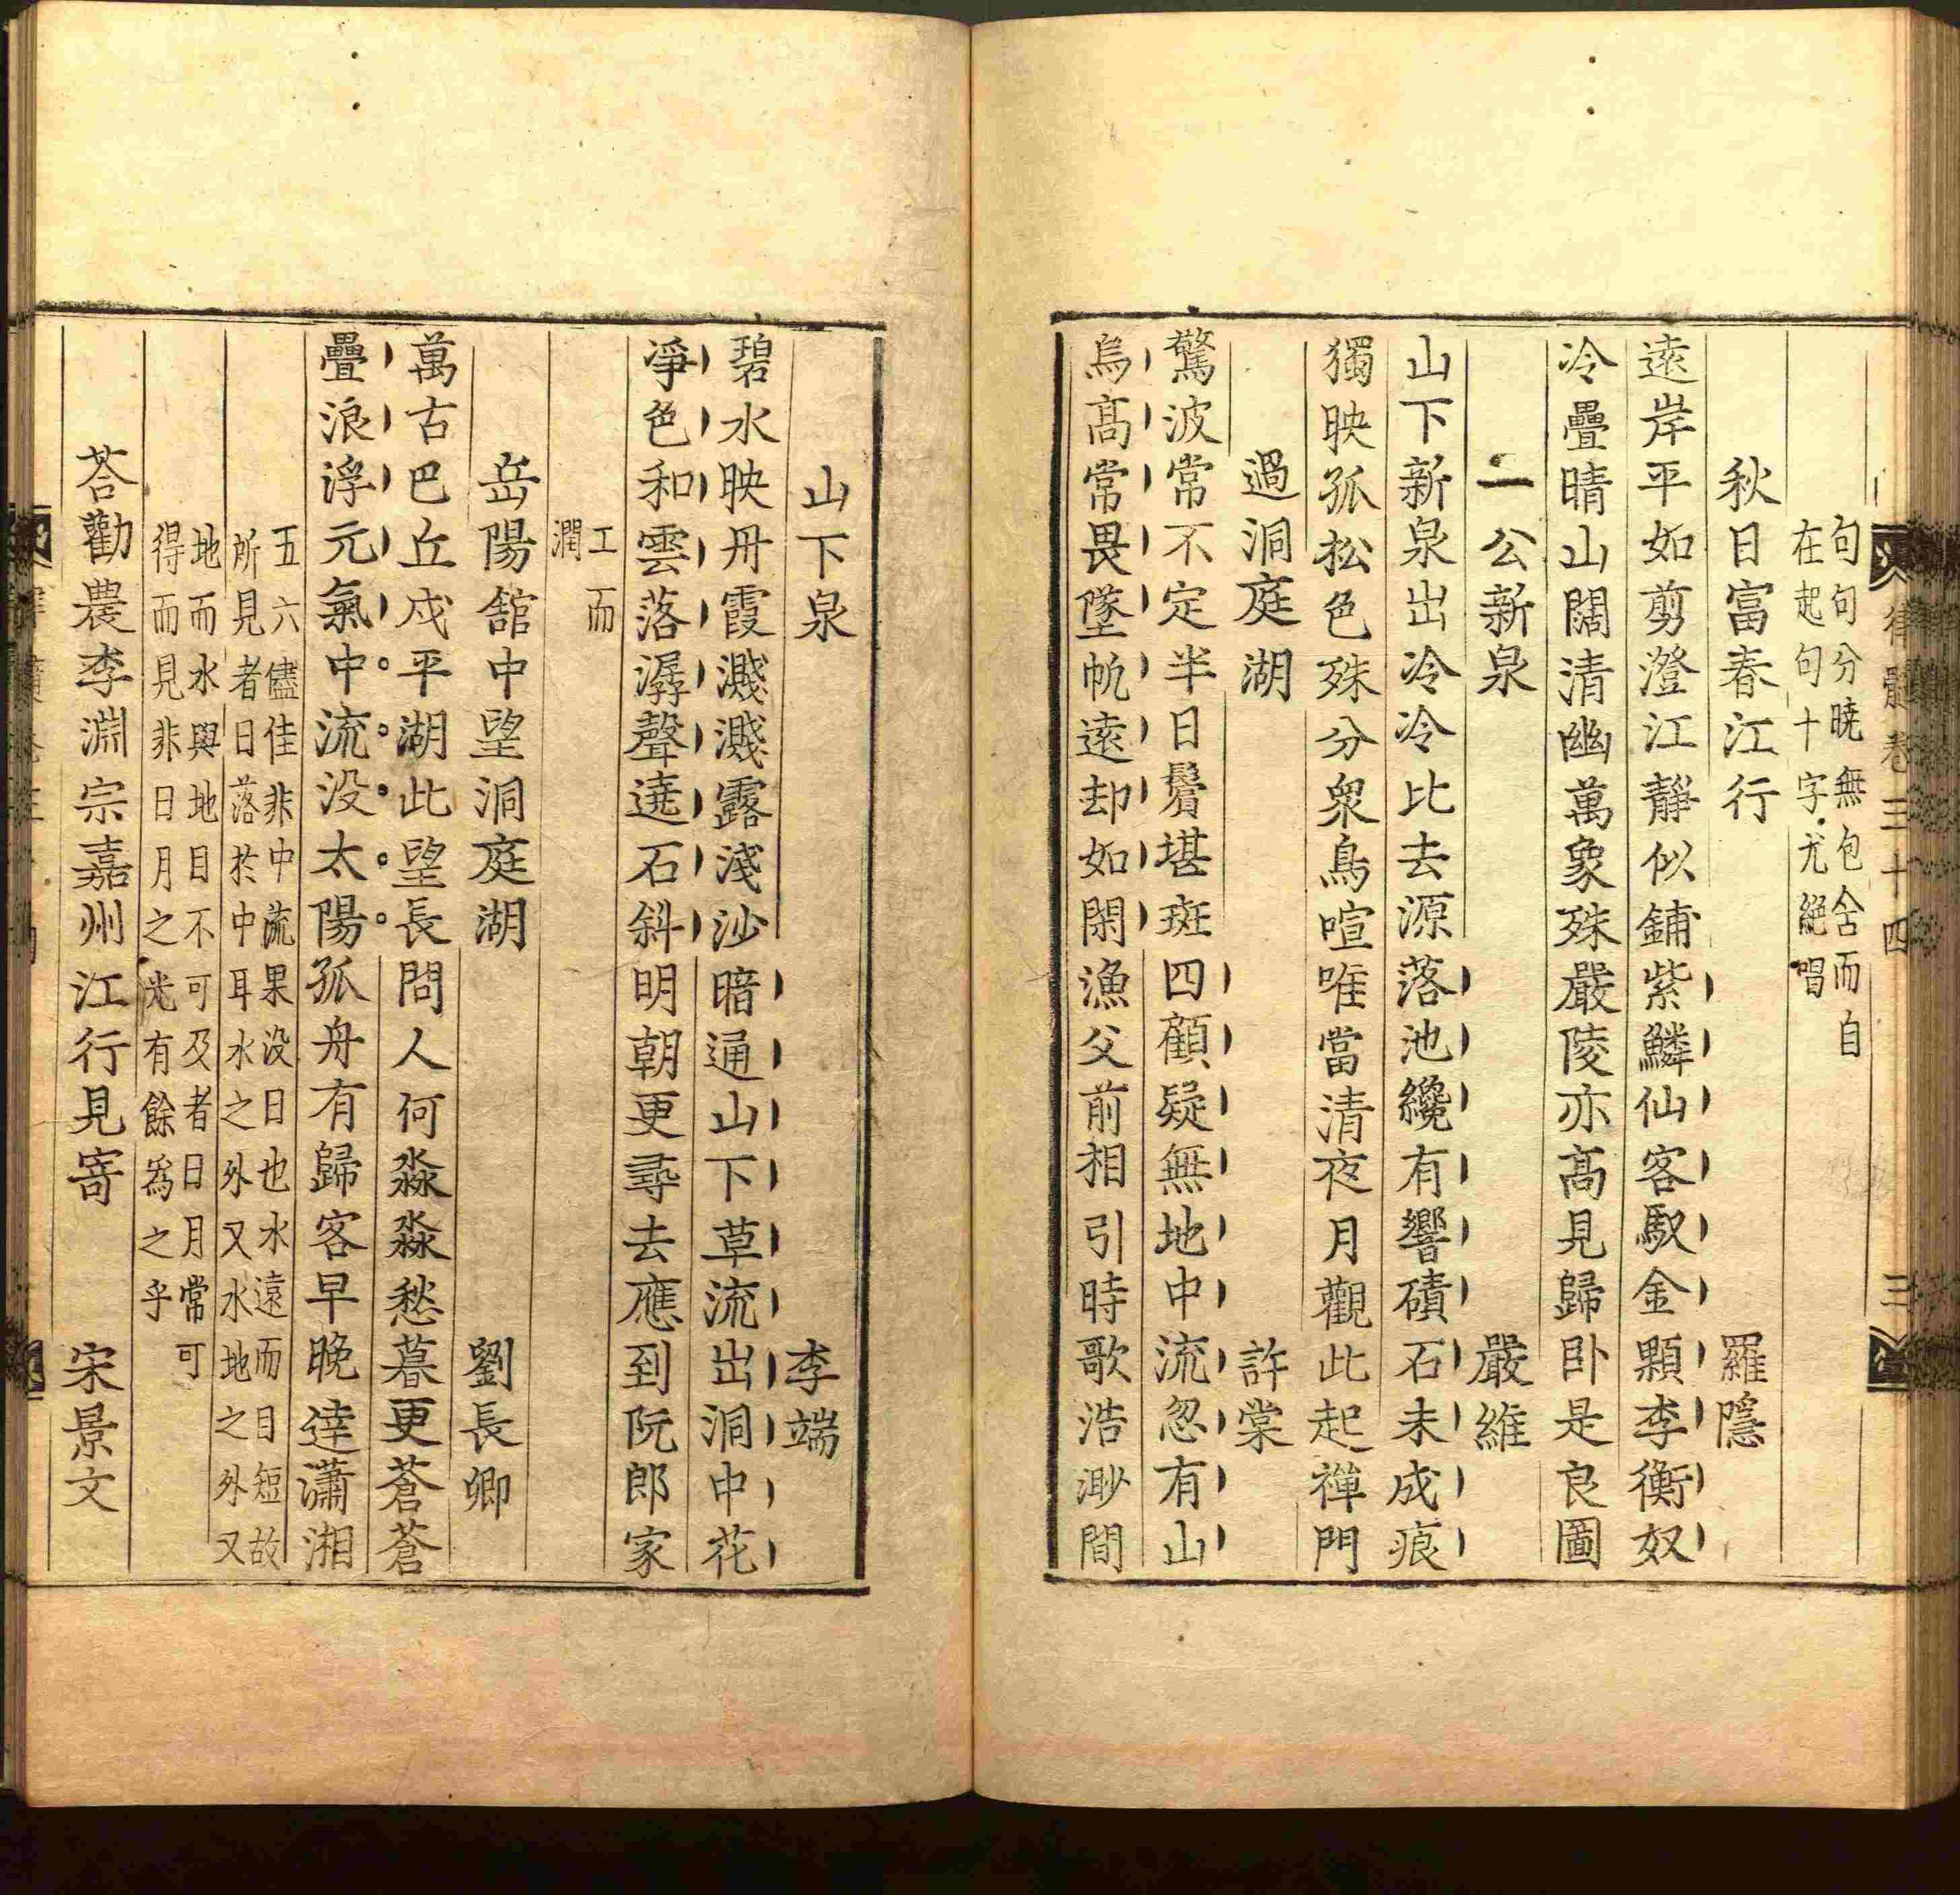 律髓卷三十四
三
句句分曉無包含而自
在起句十字尤絶唱
秋日富春江行 羅隱
遠岸平如剪澄江靜似鋪紫鱗仙客馭金顆李衡奴
冷疊晴山闊清幽萬象殊嚴陵亦高見歸卧是良圖
一公新泉 嚴維
山下新泉出泠泠比去源落池纔有響磧石未成痕
獨映孤松色殊分衆鳥喧唯當清夜月觀此起禪門
過洞庭湖 許棠
驚波常不定半日鬢堪斑四顧疑無地中流忽有山
鳥高常畏墜帆遠却如閑漁父前相引時歌浩渺間
山下泉 李端
碧水映丹霞濺濺露淺沙暗通山下草流出洞中花
凈色和雲落潺聲遶石斜明朝更尋去應到阮郎家
工而
潤
岳陽館中望洞庭湖 劉長卿
萬古巴丘戍平湖此望長問人何淼淼愁暮更蒼蒼
疊浪浮元氣中流没太陽孤舟有歸客早晚逹瀟湘
五六儘佳非中流果没日也水遠而目短故
所見者日落於中耳水之外又水地之外又
地而水與地目不可及者日月常可
得而見非日月之光有餘爲之乎
荅勸農李淵宗嘉州江行見寄 宋景文